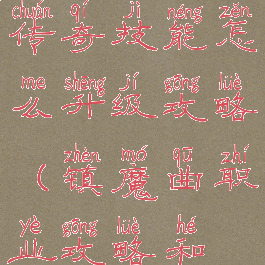 chuán qí jì néng zěn
传奇技能怎
me shēng jí gōng lüè
么升级攻略
zhèn mó qū zhí
（镇魔曲职
yè gōng lüè hé
业攻略和